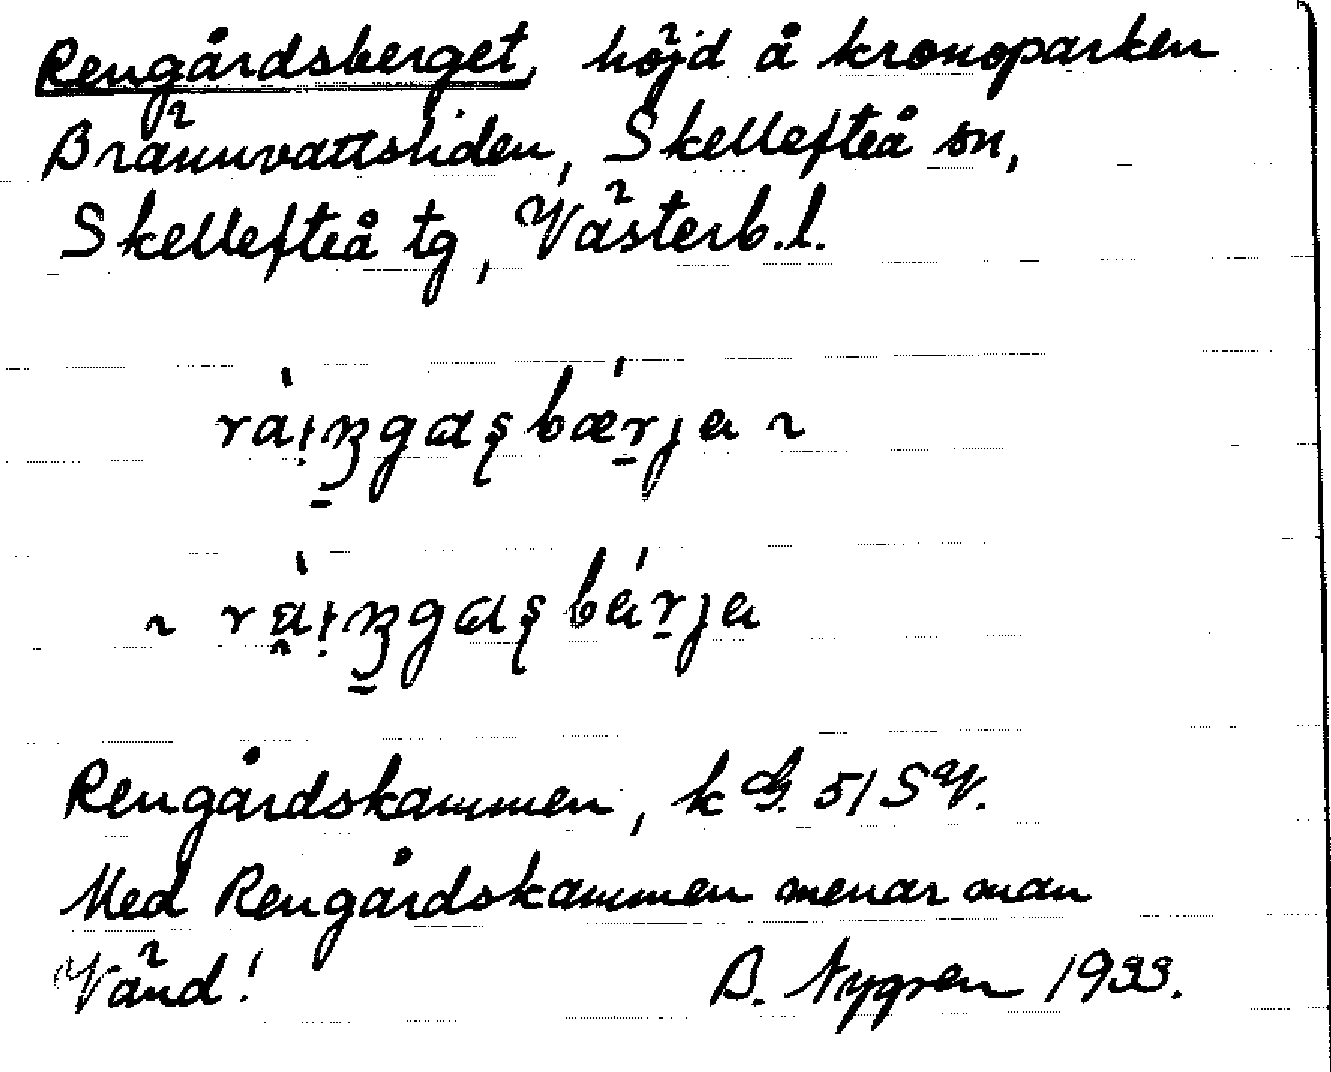 Rengårdsberget, höjd å kronoparken
Brännvattsliden, Skellefteå sn,
Skellefteå tg, Västerb.l.
rà̀i̩ŋgɑʂbǽrja ~
~ rài̩ŋgɑʂbárja
Rengårdskammen, k G. 51 SV.
Med Rengårdskammen menar man
Vänd! B. Nygren 1933.